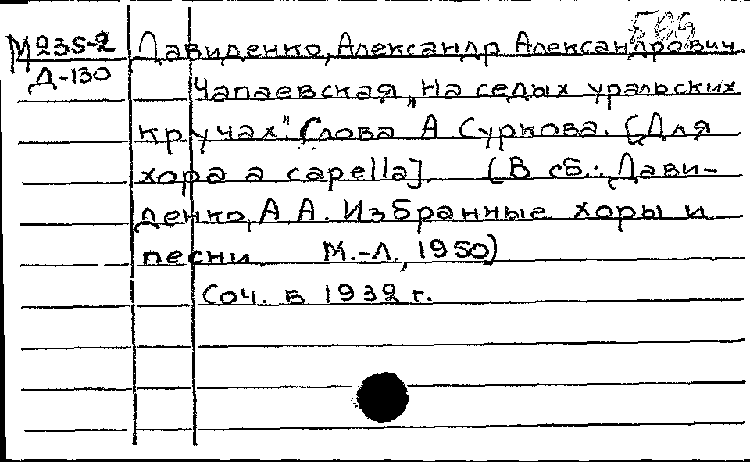 М235-2 Давиденко, Александр Александрович.
Д-130 Чапаевская „На седых уральских
кручах". Слова А. Суркова. [Для
хора a capella]. (В сб.: Дави-
денко, А. А. Избранные хоры и
песни. М.-Л., 1950)
Соч. в 1932 г.